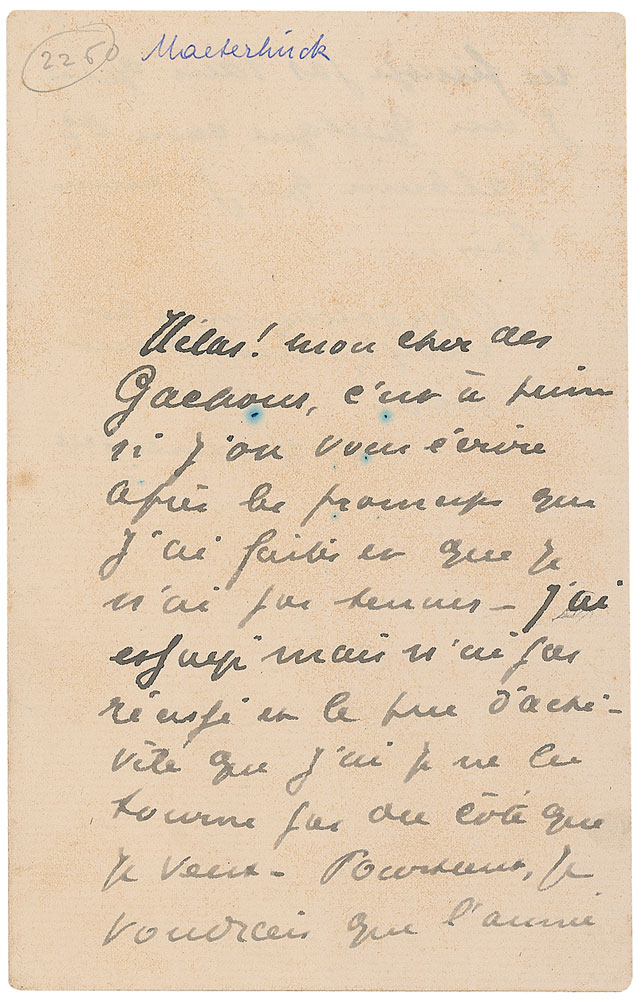 2260 Maeterlinck
Hélas! mon cher des
Gachons, c'est à peine
si j'ose vous écrire
après les promesses que
j'ai faites et que je
n'ai pas tenues – j'ai
essayé mais n'ai pas
réussi et le peu d'acti-
vité que j'ai je ne le
tourne pas du côté que
je veux – Pourtant, je
voudrais que l'année